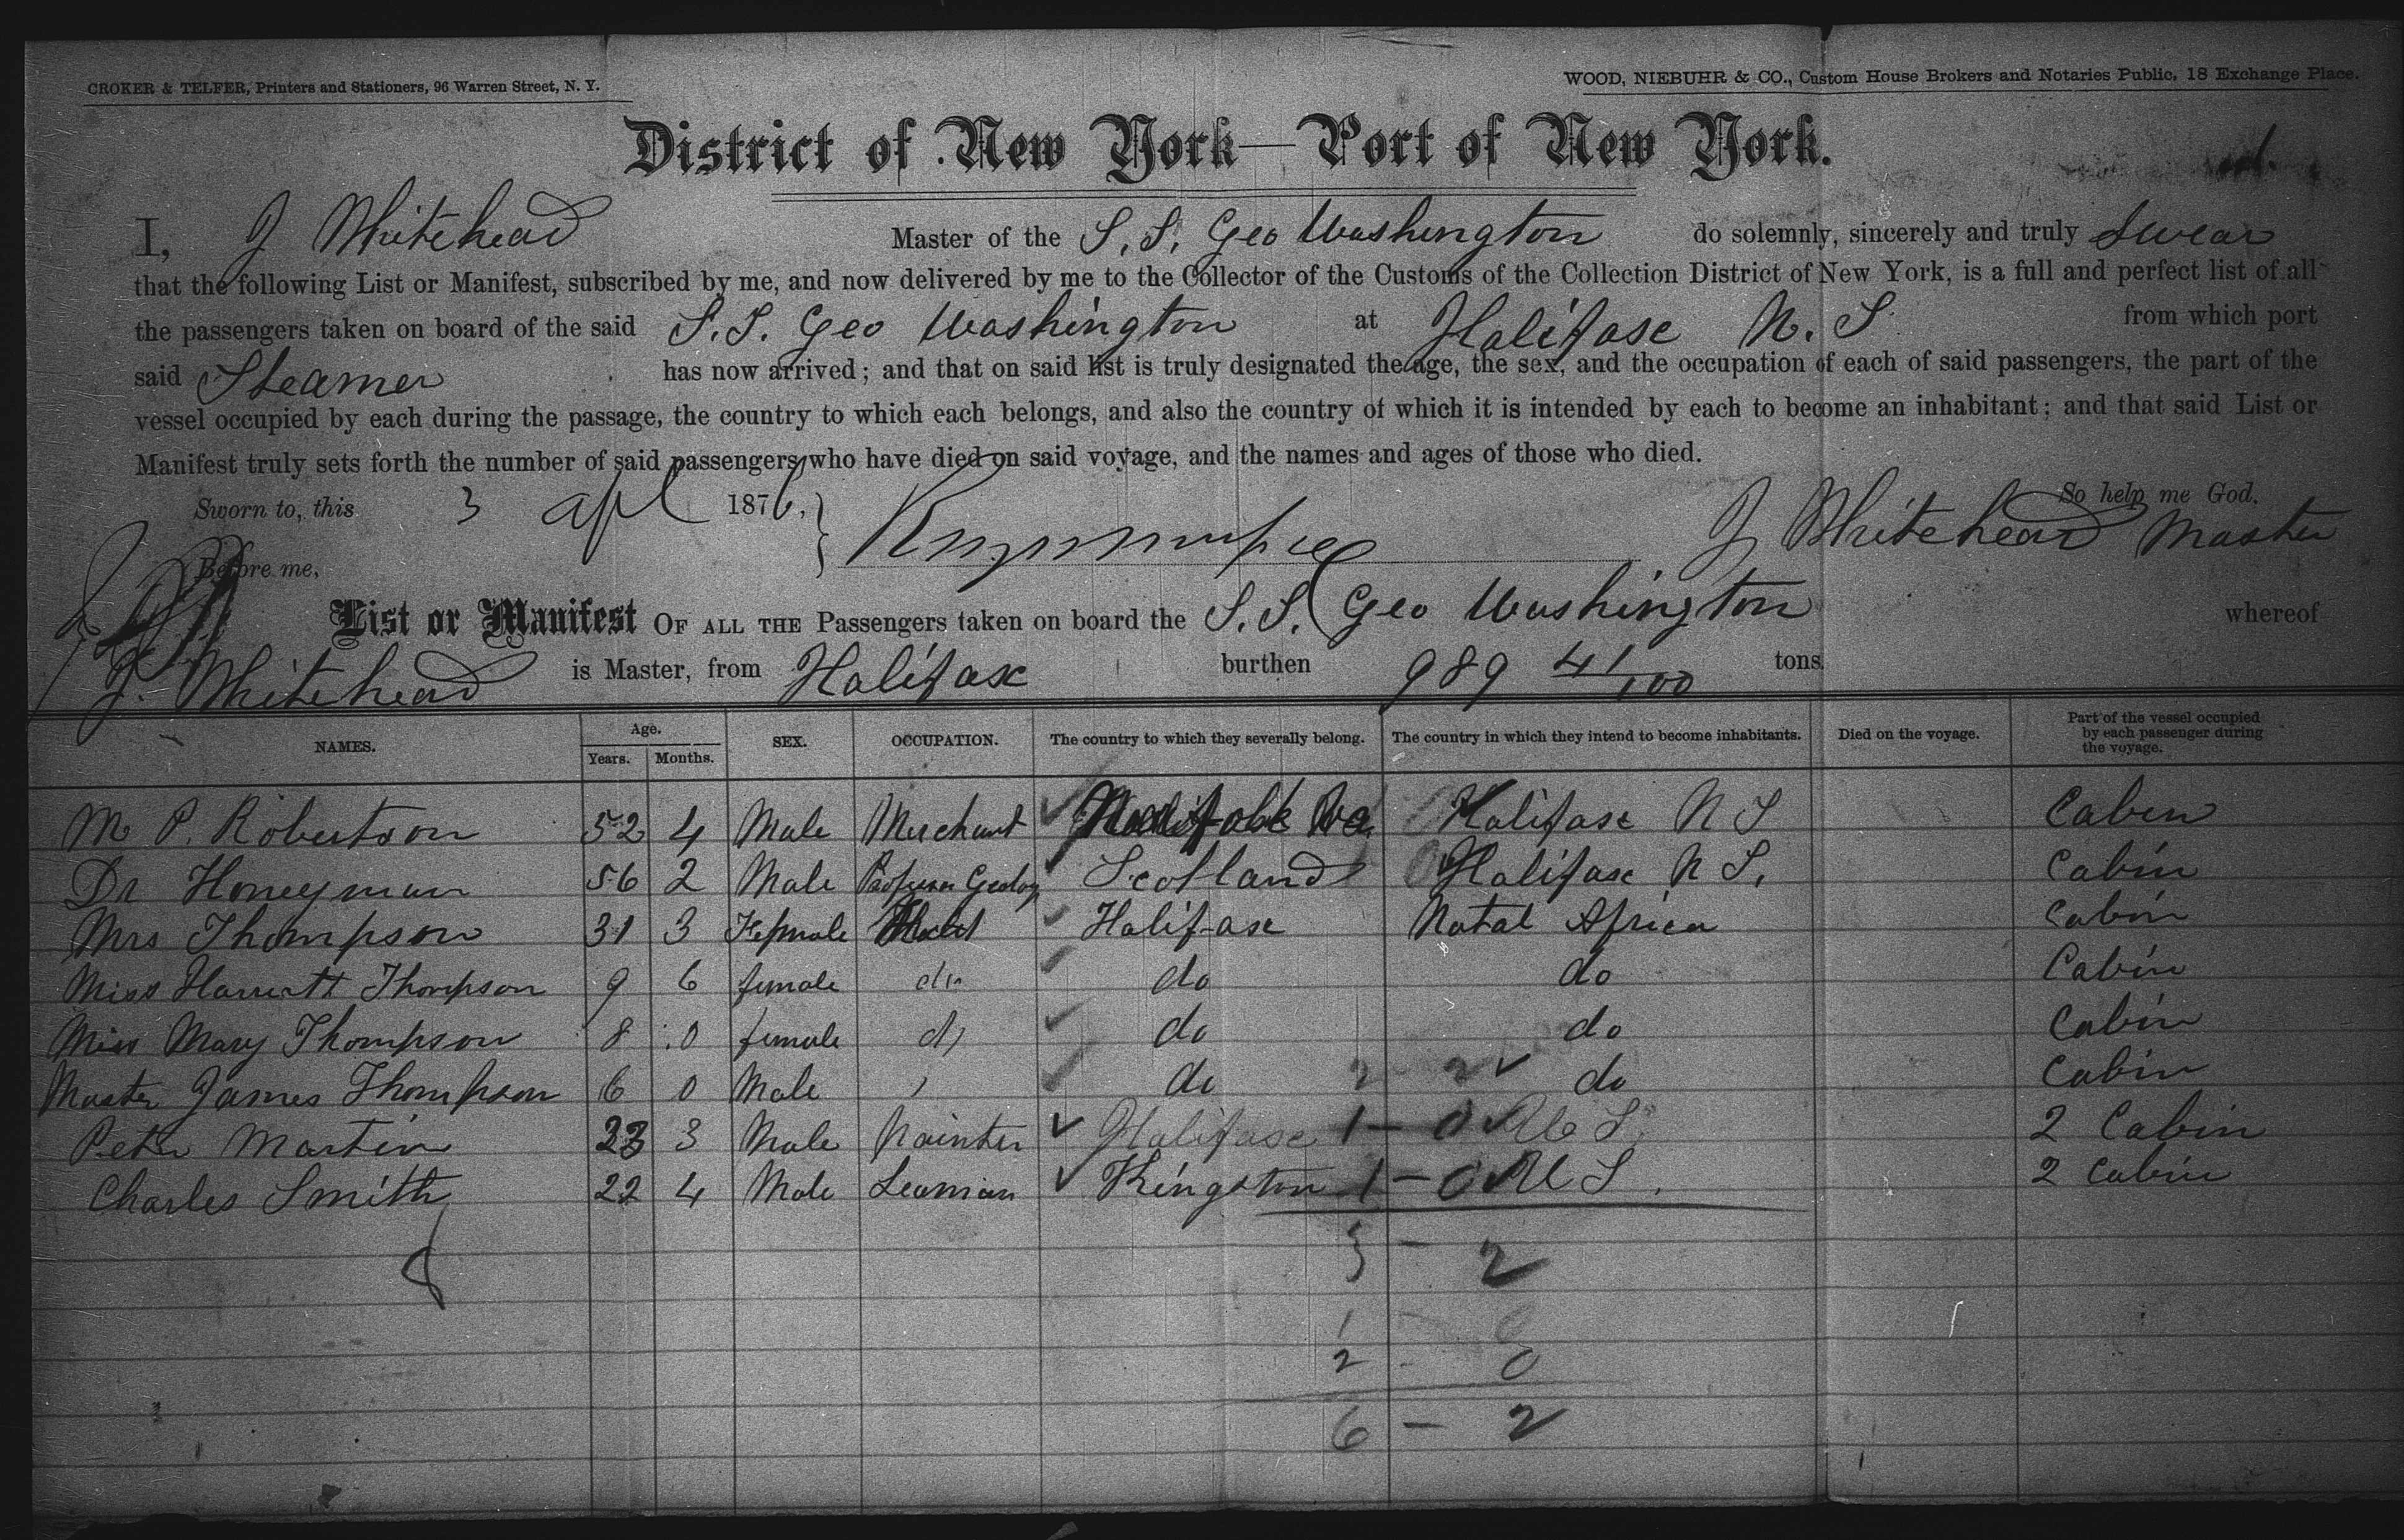 CROKER & TELFER, Printers and Stationers, 96 Warren Street, N. Y.
WOOD, NIEBUHR & CO., Custom House Brokers and Notaries Public, 18 Exchange Place.
District of New York—Port of New York.
I, J Whitehead Master of the S.S. Geo Washington do solemnly, sincerely and truly Swear
that the following List or Manifest, subscribed by me, and now delivered by me to the Collector of the Customs of the Collection District of New York, is a full and perfect list of all
the passengers taken on board of the said S.S. Geo Washington at Halifax N.S from which port
said Steamer has now arrived; and that on said list is truly designated the age, the sex, and the occupation of each of said passengers, the part of the
vessel occupied by each during the passage, the country to which each belongs, and also the country of which it is intended by each to become an inhabitant; and that said List or
Manifest truly sets forth the number of said passengers who have died on said voyage, and the names and ages of those who died.
Sworn to, this 3 Apl 1876, So help me God.
J Whitehead Master
Before me,
List or Manifest OF ALL THE Passengers taken on board the S.S. Geo Washington whereof
J. Whitehead is Master, from Halifax burthen 989 41/100 tons.
NAMES. Age. Years. Months. SEX. OCCUPATION. The country to which they severally belong. The country in which they intend to become inhabitants. Died on the voyage. Part of the vessel occupied by each passenger during the voyage.
M P. Robertson 52 4 Male Merchant Halifax N S Cabin
Dr Honeyman 56 2 Male Professor Geology Scotland Halifax N S. Cabin
Mrs Thompson 31 3 Female Halifax Natal Africa Cabin
Miss Harriett Thompson 9 6 female do do do Cabin
Miss Mary Thompson 8 0 female do do do Cabin
Master James Thompson 6 0 Male do 2 2 do Cabin
Peter Martin 23 3 Male Painter Halifax 1 - 0 U S. 2 Cabin
Charles Smith 22 4 Male Seaman Kingston 1 - 0 U S. 2 Cabin
8
3 - 2
1 - 0
2 - 0
6 - 2